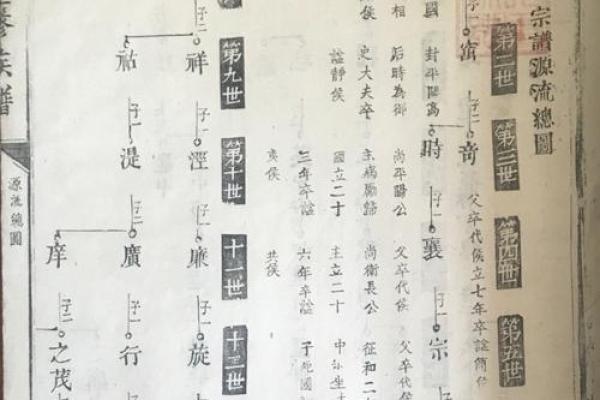 宗譜源流總圖
第二世 第三世 第四世 第五世
子二
父卒代侯立七年卒謚簡侯
奇
時 子一 襄 子一 宗
國 封平陽高
相 后時為御 尚平陽公 父卒代侯 父卒代
侯 史大夫卒 主病癘歸 尚衛長公 征和二
謚靜侯 國立二十 主立二十
三年卒謚 六年卒謚 子死國
夷侯 共侯
第九世 第十世 十一世 十二世
子二 祥 子一 涇 子一 廉 子一 旋
祜 子一 湜 子二 廣 子一 行
庠 子二 之茂
族譜
源流總圖